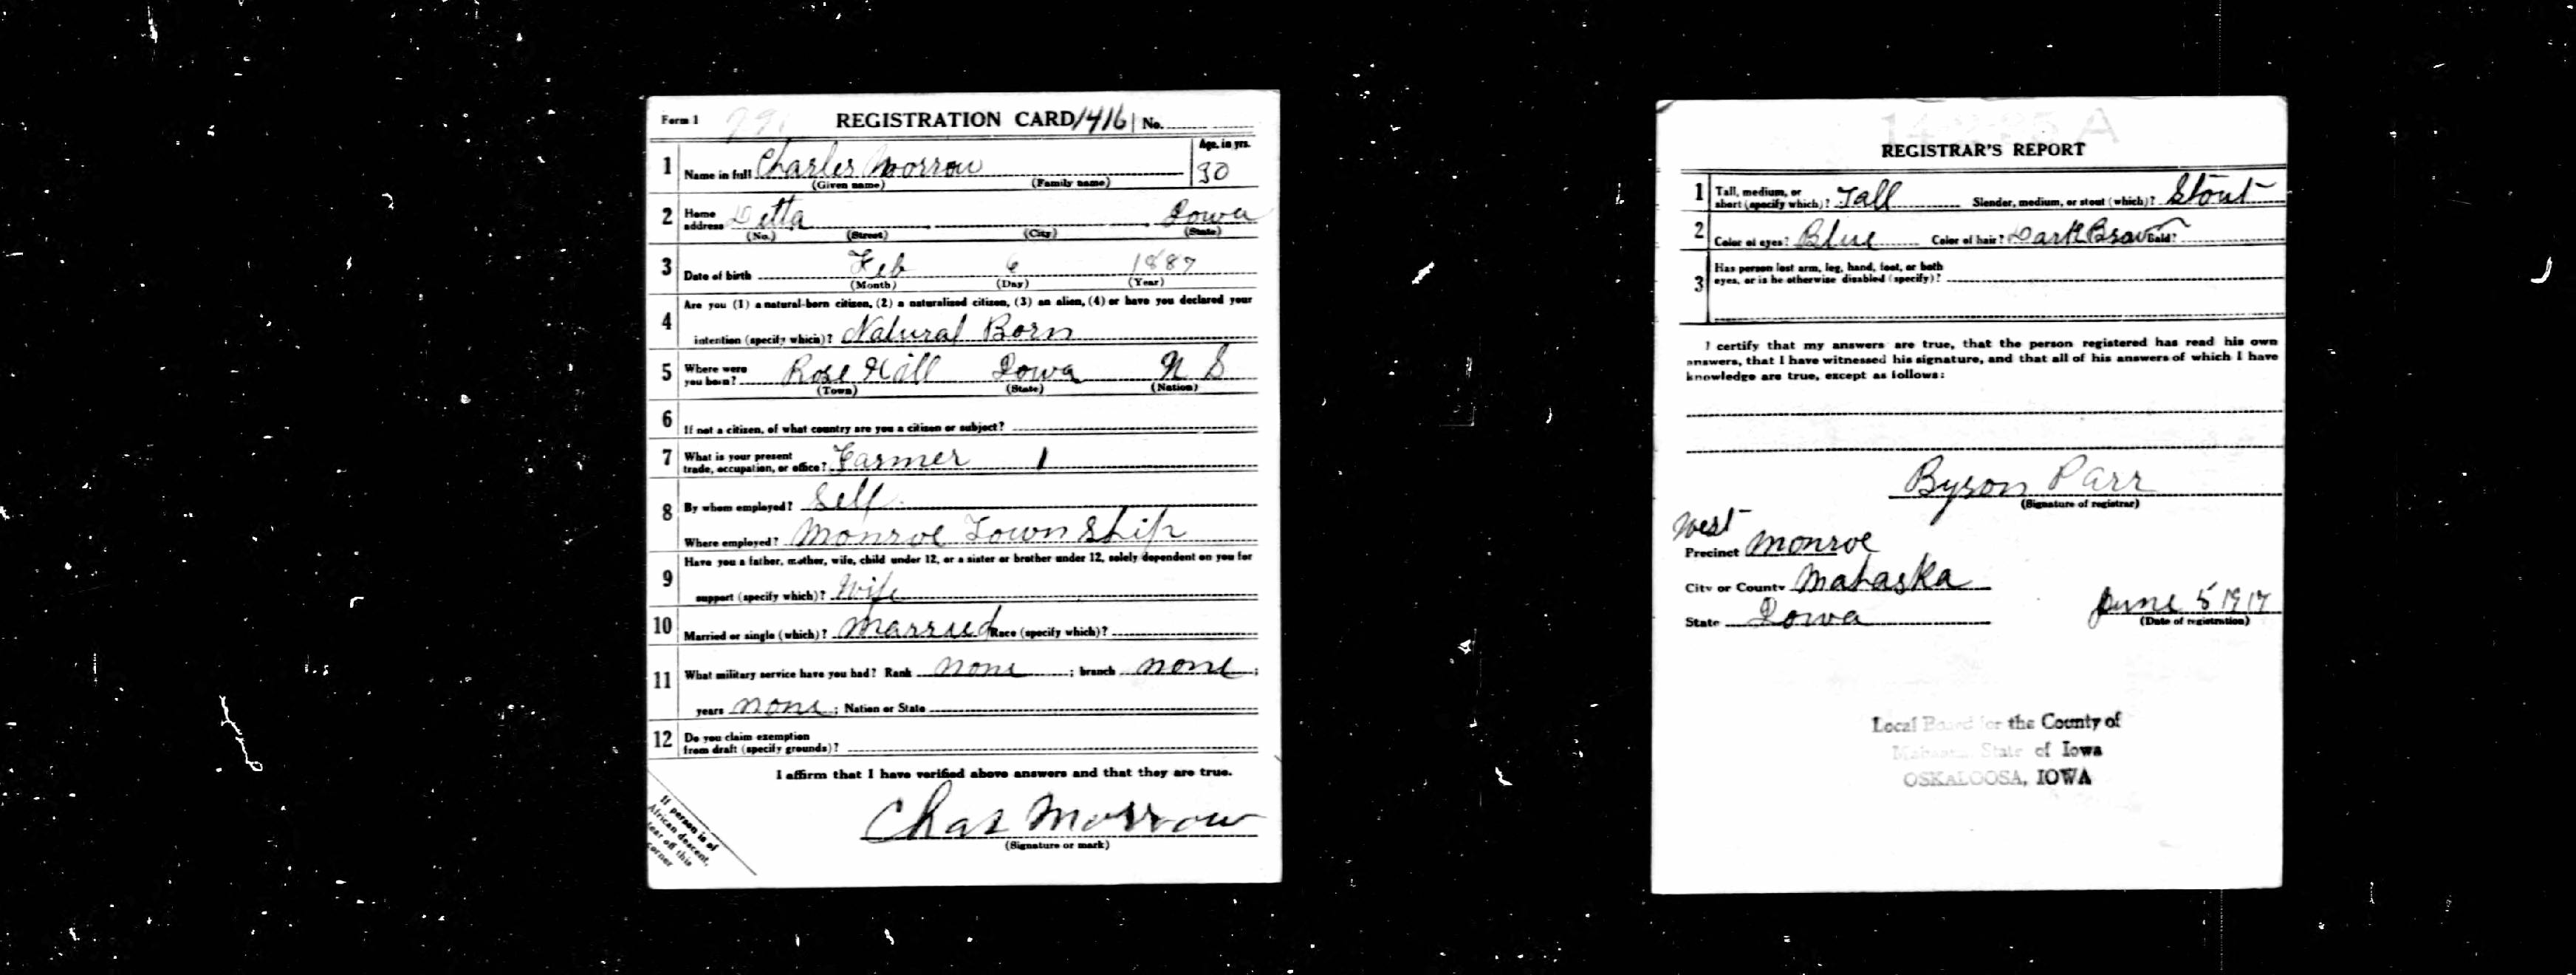 Form 1 REGISTRATION CARD 1416 No.
1 Name in full Charles Morrow Age, in yrs. 30
(Given name) (Family name)
2 Home address Iowa
(No.) (Street) (City) (State)
3 Date of birth Feb 6 1887
(Month) (Day) (Year)
4 Are you (1) a natural-born citizen, (2) a naturalized citizen, (3) an alien, (4) or have you declared your
intention (specify which)? Natural Born
5 Where were you born? Rose Hill Iowa U S
(Town) (State) (Nation)
6 If not a citizen, of what country are you a citizen or subject?
7 What is your present
trade, occupation, or office? Farmer 1
8 By whom employed? Self
Where employed? Monroe Town Ship
9 Have you a father, mother, wife, child under 12, or a sister or brother under 12, solely dependent on you for
support (specify which)? Wife
10 Married or single (which)? Married Race (specify which)?
11 What military service have you had? Rank none ; branch none ;
years none ; Nation or State
12 Do you claim exemption
from draft (specify grounds)?
I affirm that I have verified above answers and that they are true.
Chas Morrow
(Signature or mark)
If person is of
African descent,
tear off this
corner
REGISTRAR'S REPORT
1 Tall, medium, or
short (specify which)? Tall Slender, medium, or stout (which)? Stout
2 Color of eyes? Blue Color of hair? Dark Brown Bald?
3 Has person lost arm, leg, hand, foot, or both
eyes, or is he otherwise disabled (specify)?
I certify that my answers are true, that the person registered has read his own
answers, that I have witnessed his signature, and that all of his answers of which I have
knowledge are true, except as follows:
Byron Parr
(Signature of registrar)
West
Precinct Monroe
City or County Mahaska
State Iowa June 5 1917
(Date of registration)
Local Board for the County of
Mahaska, State of Iowa
OSKALOOSA, IOWA